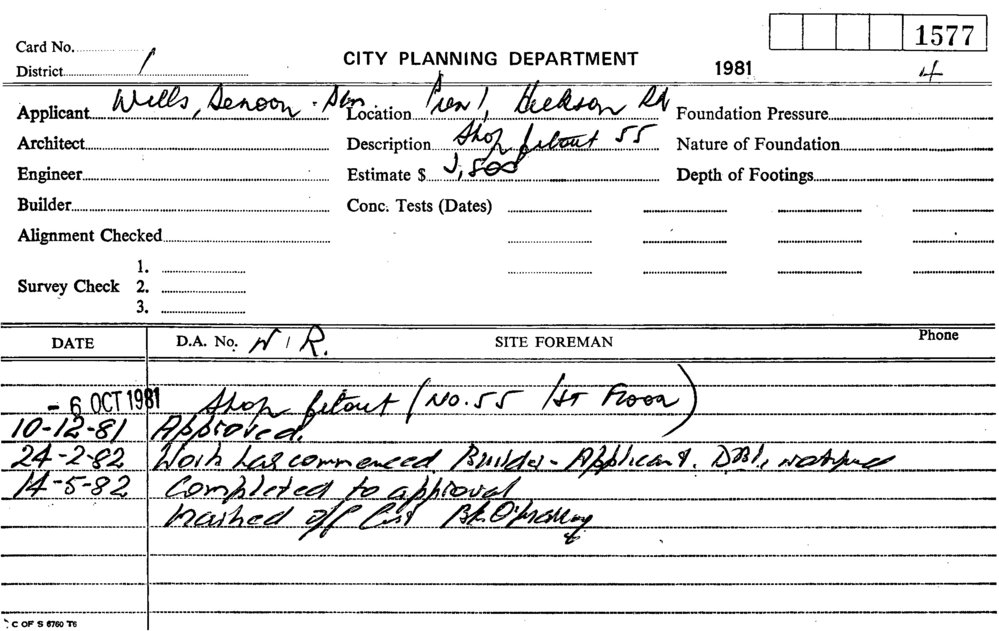 1577
Card No.
CITY PLANNING DEPARTMENT
District 1
1981 4
Applicant Wills, Denoon Location Pier 1, Hickson Rd Foundation Pressure
Architect Description Shop fitout 55 Nature of Foundation
Engineer Estimate $ ,500 Depth of Footings
Builder Conc. Tests (Dates)
Alignment Checked
1.
Survey Check 2.
3.
DATE D.A. No. N / R. SITE FOREMAN Phone
- 6 OCT 1981 Shop fitout (No. 55 1st Floor)
10-12-81 Approved.
24-2-82 Work has commenced. Builder - Applicant.
14-5-82 Completed to approval
Marked off List
C OF S 6760 T6